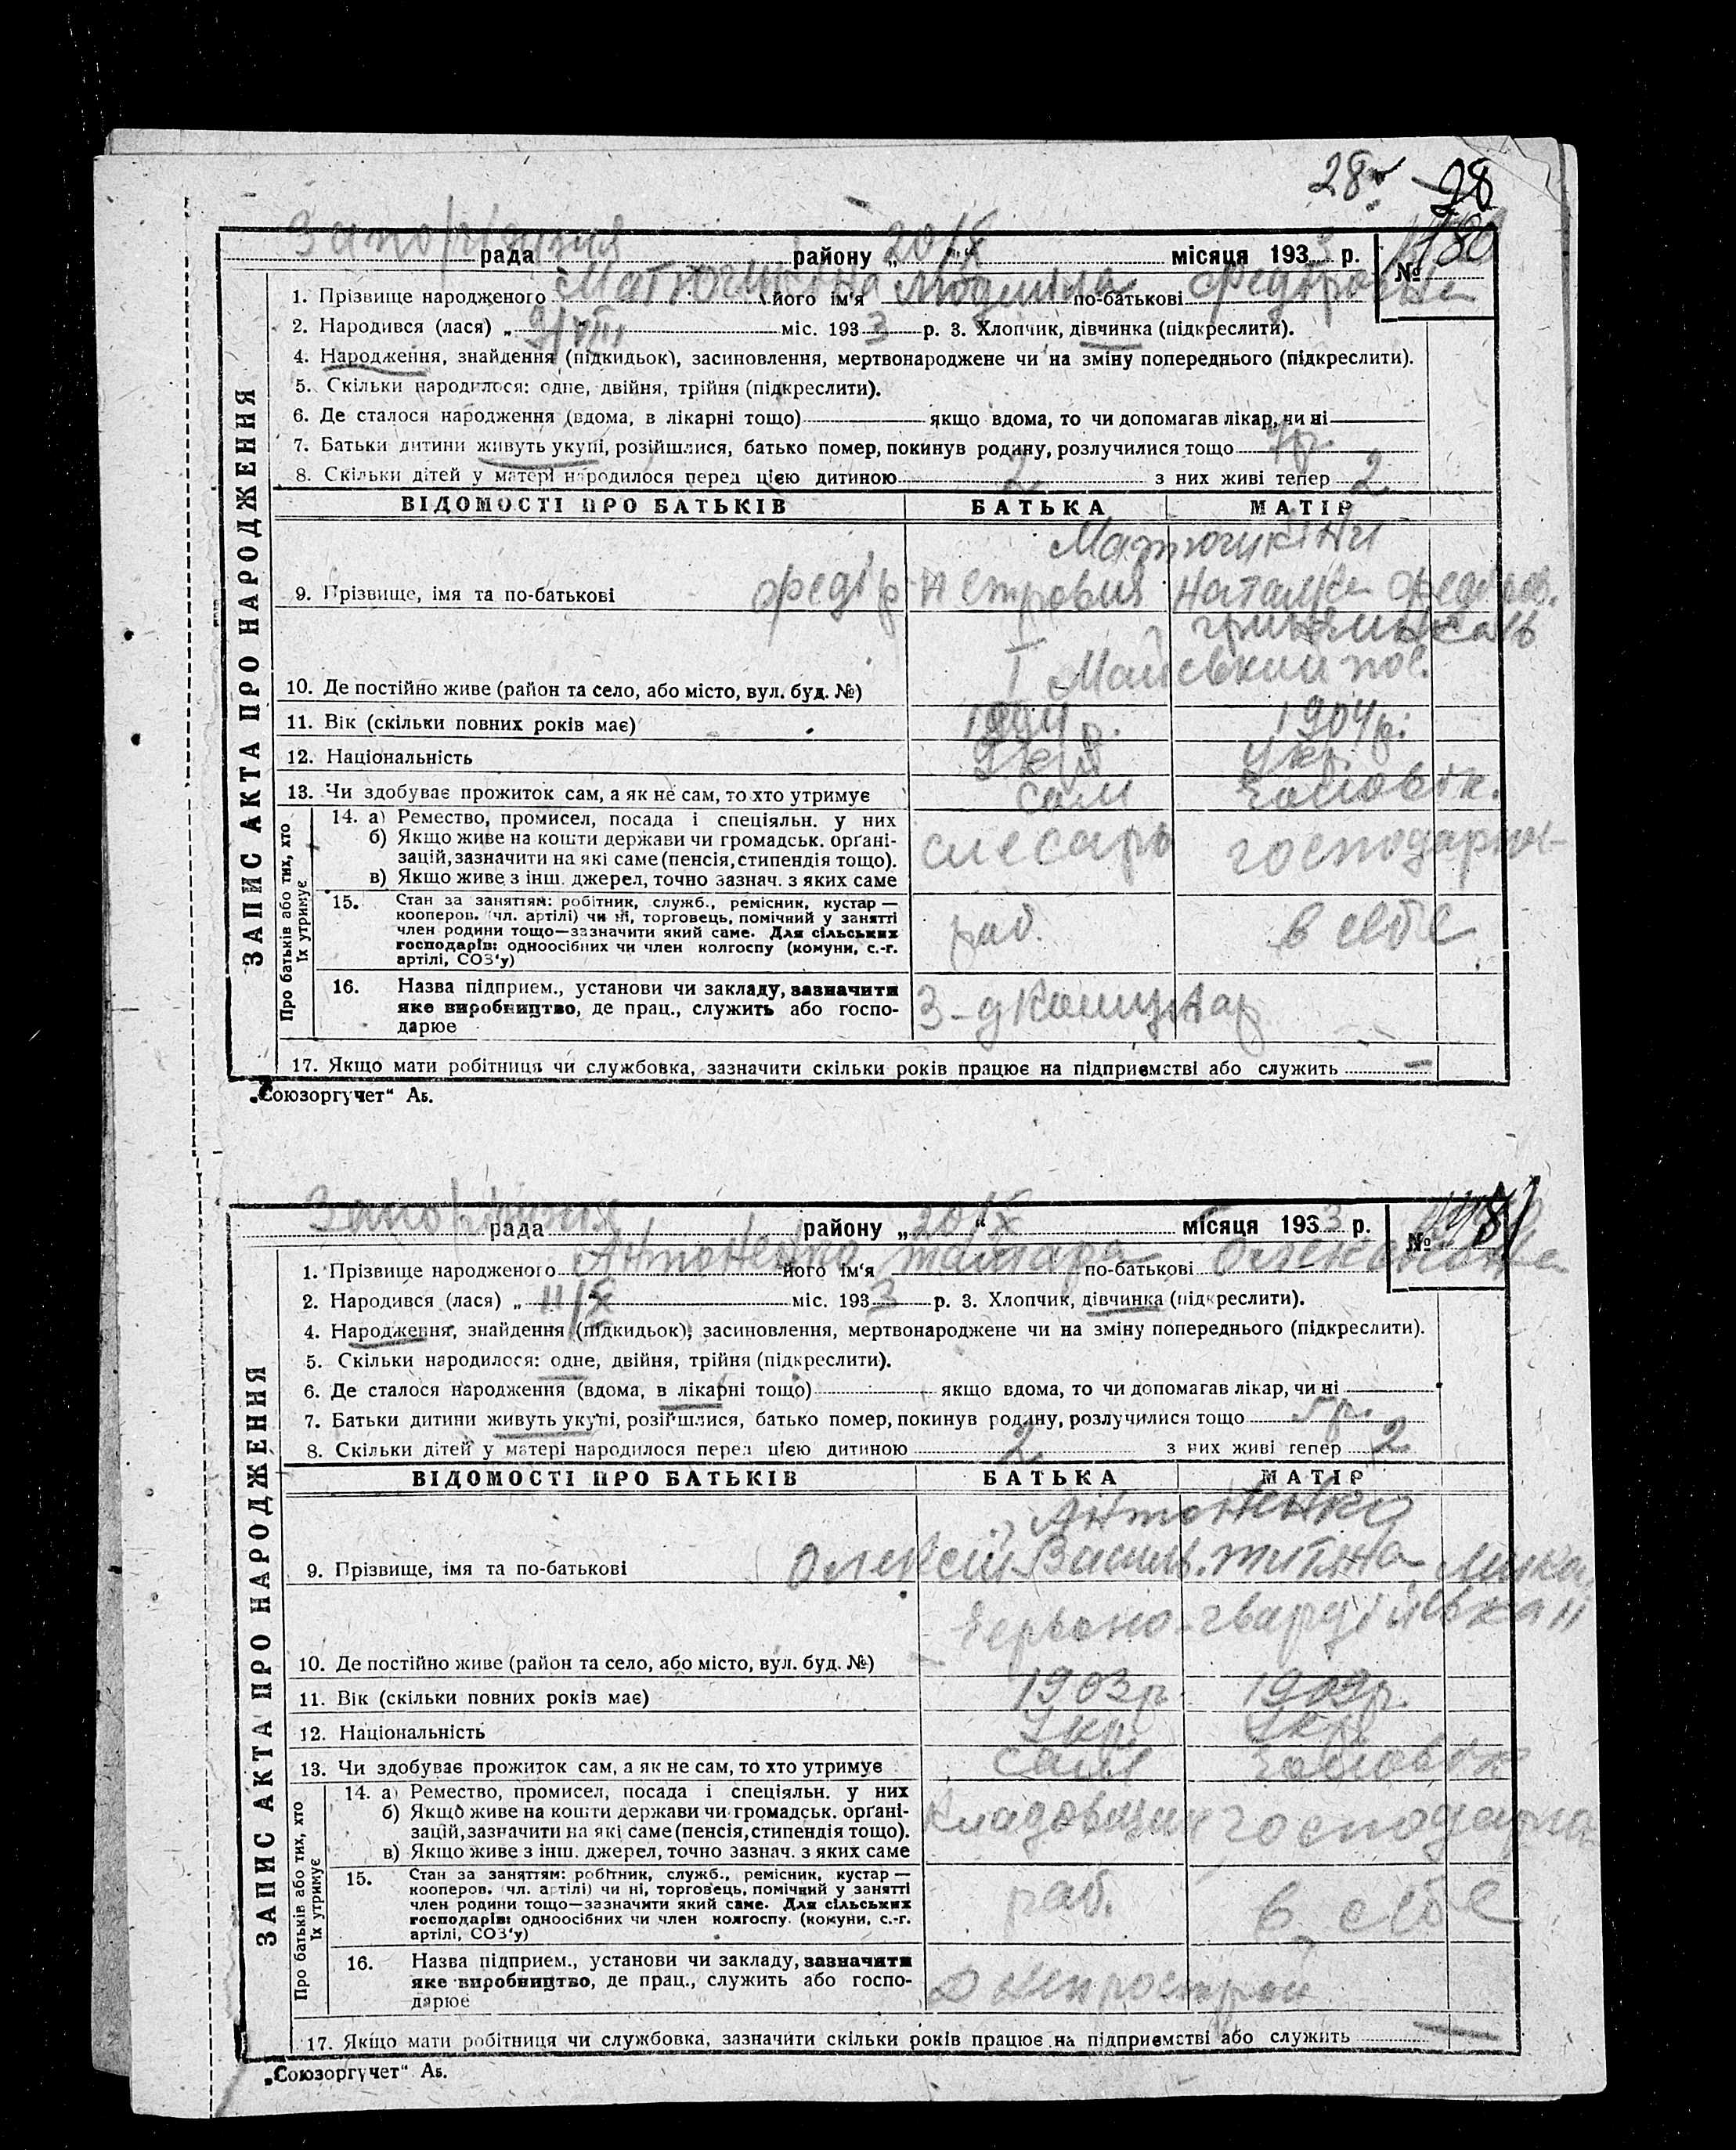 28
28
Запоріжжя рада району „ 20/X “ місяця 1933 р. №
180
1. Прізвище народженого Матюшкіна його ім'я Людміла по-батькові Федоров
2. Народився (лася) „ 9/VIII міс. 1933 р. 3. Хлопчик, дівчинка (підкреслити).
4. Народження, знайдення (підкидьок), засиновлення, мертвонароджене чи на зміну попереднього (підкреслити).
5. Скільки народилося: одне, двійня, трійня (підкреслити).
6. Де сталося народження (вдома, в лікарні тощо) якщо вдома, то чи допомагав лікар, чи ні
7. Батьки дитини живуть укупі, розійшлися, батько помер, покинув родину, розлучилися тощо 7р.
8. Скільки дітей у матері народилося перед цією дитиною 2 з них живі тепер 2
ВІДОМОСТІ ПРО БАТЬКІВ БАТЬКА МАТІР
Матюшкіни
9. Прізвище, імя та по-батькові Федір Петрович Наталка Федоров.
І Маївський пос.
10. Де постійно живе (район та село, або місто, вул. буд. №)
11. Вік (скільки повних років має) 1904р.
12. Національність Укр Укр.
13. Чи здобуває прожиток сам, а як не сам, то хто утримує сам Чоловік.
14. а) Ремество, промисел, посада і спеціяльн. у них
б) Якщо живе на кошти держави чи громадськ. орґані-
зацій, зазначити на які саме (пенсія, стипендія тощо). слесарь господарює
в) Якщо живе з інш. джерел, точно зазнач. з яких саме
15. Стан за заняттям: робітник, служб., ремісник, кустар —
кооперов. (чл. артілі) чи ні, торговець, помічний у занятті
член родини тощо—зазначити який саме. Для сільських раб. в себе
господарів: одноосібних чи член колгоспу (комуни, с.-г.
артілі, СОЗ'у)
16. Назва підприєм., установи чи закладу, зазначити
яке виробництво, де прац., служить або госпо- З-д Комунар
дарює
17. Якщо мати робітниця чи службовка, зазначити скільки років працює на підприємстві або служить —
ЗАПИС АКТА ПРО НАРОДЖЕННЯ
Про батьків або тих, хто
їх утримує
„Союзоргучет“ Аб.
Запоріжжя рада району „ 20/X “ місяця 1933 р. №
181
1. Прізвище народженого Антоненко його ім'я Тамара по-батькові
2. Народився (лася) „ 11/X міс. 1933 р. 3. Хлопчик, дівчинка (підкреслити).
4. Народження, знайдення (підкидьок), засиновлення, мертвонароджене чи на зміну попереднього (підкреслити).
5. Скільки народилося: одне, двійня, трійня (підкреслити).
6. Де сталося народження (вдома, в лікарні тощо) якщо вдома, то чи допомагав лікар, чи ні
7. Батьки дитини живуть укупі, розійшлися, батько помер, покинув родину, розлучилися тощо 5р.
8. Скільки дітей у матері народилося перед цією дитиною 2 з них живі тепер 2
ВІДОМОСТІ ПРО БАТЬКІВ БАТЬКА МАТІР
Антоненко
9. Прізвище, імя та по-батькові Олексій Василь. Титяна
Червоно-гвардійська 11
10. Де постійно живе (район та село, або місто, вул. буд. №)
11. Вік (скільки повних років має) 1903р 1909р.
12. Національність Укр. Укр.
13. Чи здобуває прожиток сам, а як не сам, то хто утримує сам Чоловік
14. а) Ремество, промисел, посада і спеціяльн. у них
б) Якщо живе на кошти держави чи громадськ. орґані-
зацій, зазначити на які саме (пенсія, стипендія тощо). Кладовщик господарює
в) Якщо живе з інш. джерел, точно зазнач. з яких саме
15. Стан за заняттям: робітник, служб., ремісник, кустар —
кооперов. (чл. артілі) чи ні, торговець, помічний у занятті
член родини тощо—зазначити який саме. Для сільських раб. в себе
господарів: одноосібних чи член колгоспу (комуни, с.-г.
артілі, СОЗ'у)
16. Назва підприєм., установи чи закладу, зазначити
яке виробництво, де прац., служить або госпо- Днепрострой
дарює
17. Якщо мати робітниця чи службовка, зазначити скільки років працює на підприємстві або служить —
ЗАПИС АКТА ПРО НАРОДЖЕННЯ
Про батьків або тих, хто
їх утримує
„Союзоргучет“ Аб.